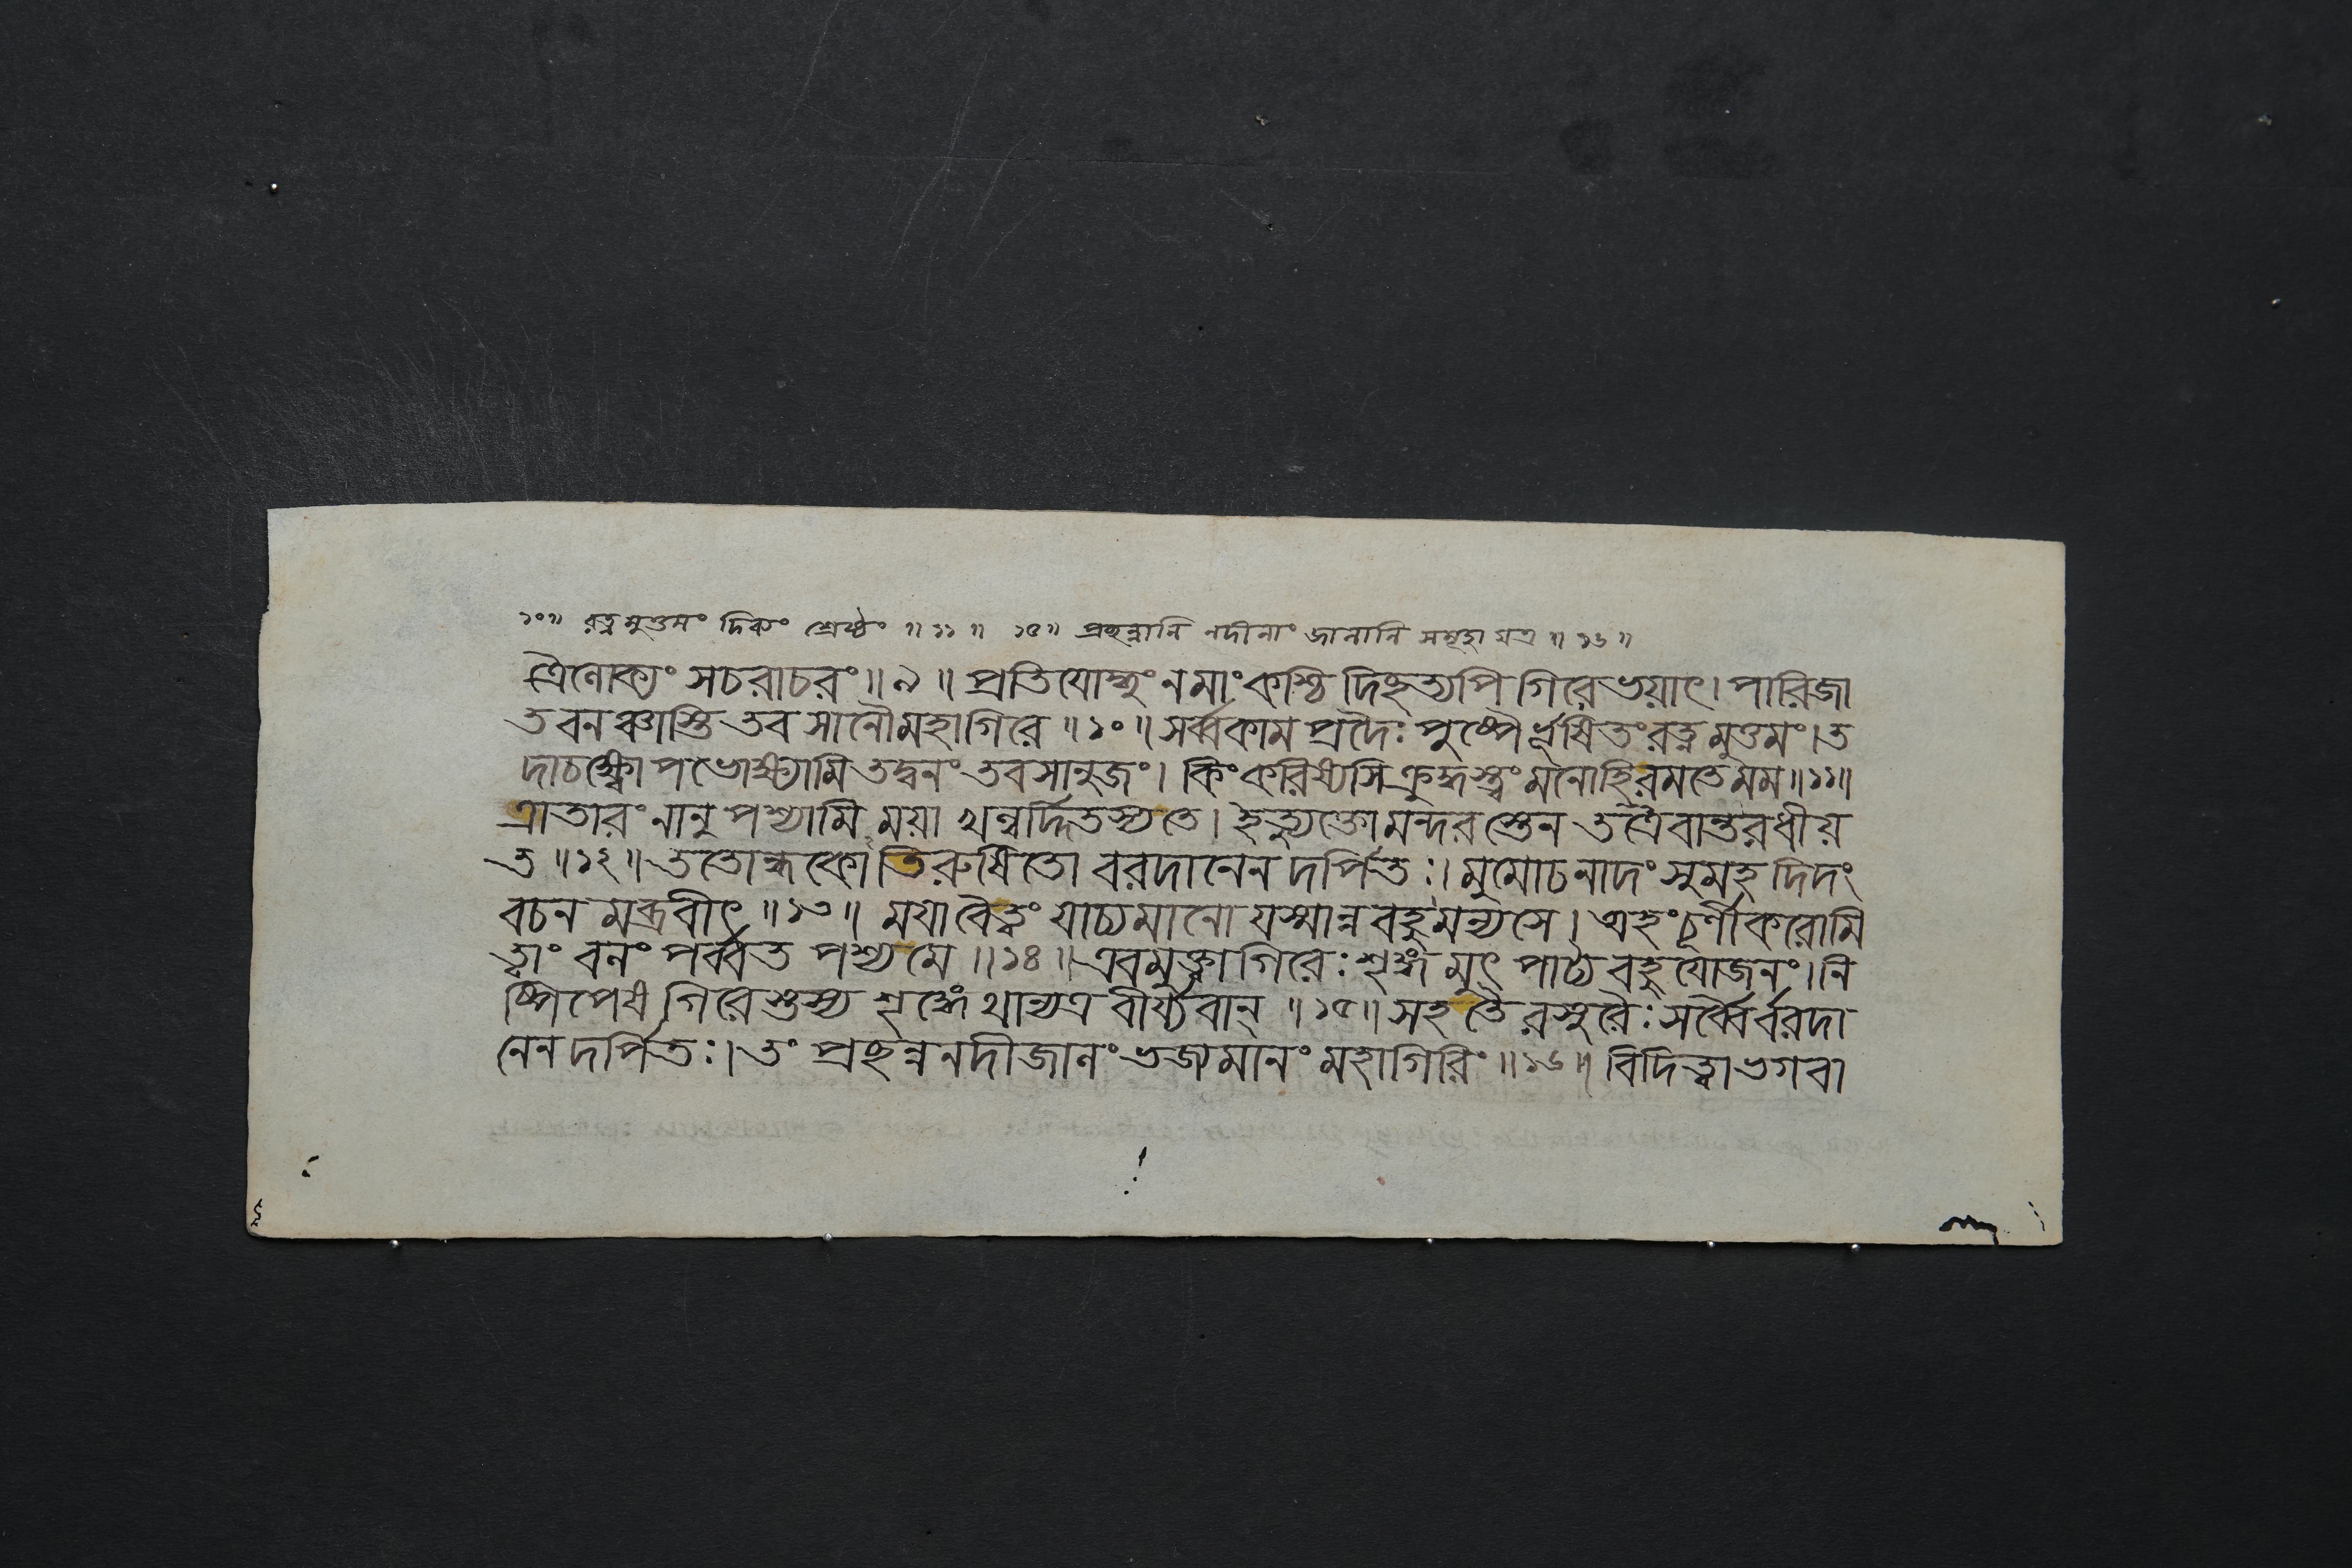 ১০॥ রত্নমুত্তমং দিব্যং শ্রেষ্ঠং ॥১১॥ ১৫॥ প্রচ্ছন্নানি নদীনাং জালানি সমূহা যত্র ॥১৬॥
ত্রৈলোক্যং সচরাচরং॥৯॥ প্রতিযোদ্ধুং ন মাং কশ্চিদিচ্ছত্যপি গিরে ভয়াৎ। পারিজা
তবনঞ্চাস্তি তব সানৌ মহাগিরে॥১০॥ সর্ব্বকামপ্রদৈঃ পুষ্পৈর্ভূষিতং রত্নমুত্তমং। ত
দাচক্ষ্বোপভোক্ষ্যামি তদ্বনং তব সানুজং। কিং করিষ্যসি ক্রুদ্ধস্ত্বং মনো হি রমতে মম॥১১॥
ত্রাতারং নানুপশ্যামি ময়া খল্বর্দ্দিতস্য তে। ইত্যুক্তো মন্দরস্তেন তত্রৈবান্তরধীয়
ত॥১২॥ ততোন্ধকোতিরুষিতো বরদানেন দর্পিতঃ। মুমোচ নাদং সুমহদিদং
বচনমব্রবীৎ॥১৩॥ ময়া বৈ ত্বং যাচ্যমানো যস্মান্ন বহুমন্যসে। অহং চূর্ণীকরোমি
ত্বাং বলং পর্ব্বত পশ্য মে॥১৪॥ এবমুক্ত্বা গিরেঃ শৃঙ্গমুৎপাট্য বহুযোজনং। নি
ষ্পিপেষ গিরেস্তস্য শৃঙ্গেথান্যত্র বীর্য্যবান্॥১৫॥ সহ তৈরসুরৈঃ সর্ব্বৈর্বরদা
নেন দর্পিতঃ। তং প্রচ্ছন্ননদীজালং ভজ্যমানং মহাগিরিং॥১৬॥ বিদিত্বা ভগবা